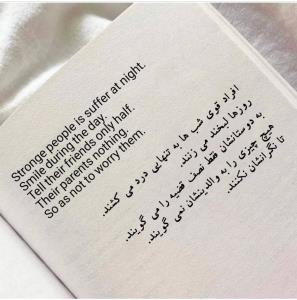 Stronge people is suffer at night.
Smile during the day.
Tell their friends only half.
Their parents nothing.
So as not to worry them.
افراد قوی شب ها به تنهایی درد می کشند.
روزها لبخند می زنند.
به دوستانشان فقط نصف قضیه را می گویند.
هیچ چیزی را به والدینشان نمی گویند.
تا نگرانشان نکنند.